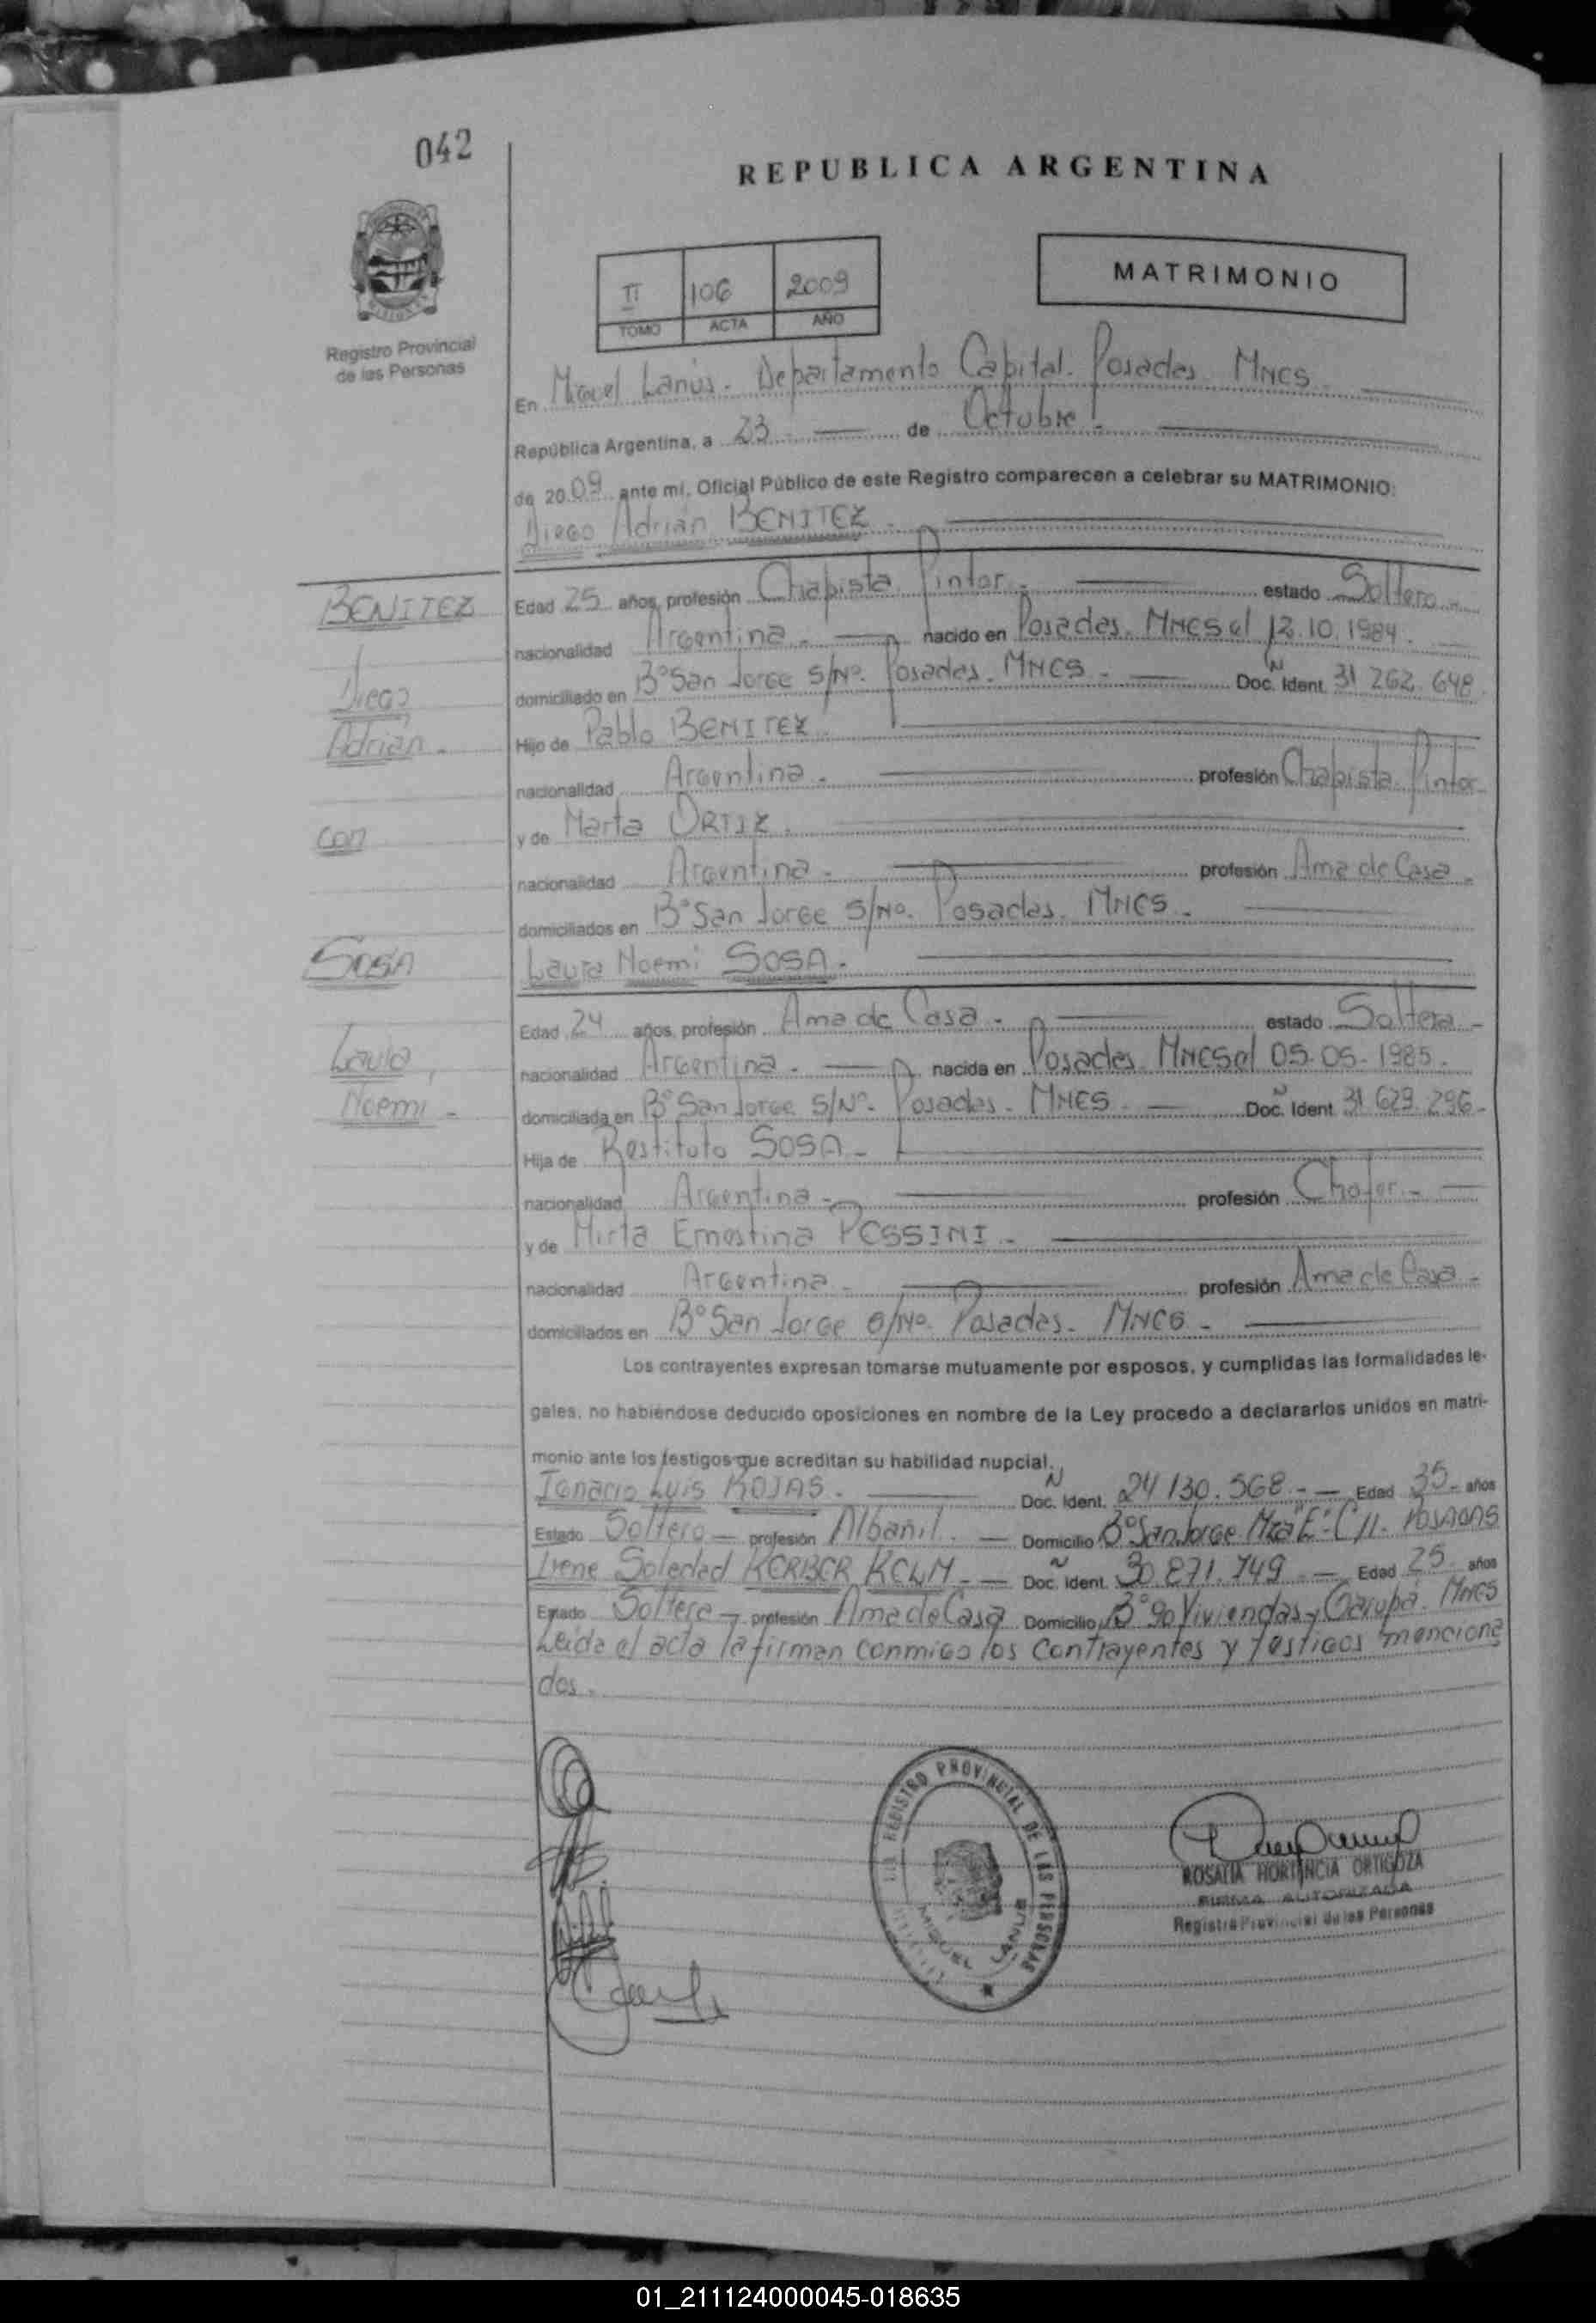 042
REPUBLICA ARGENTINA
II 106 2009
TOMO ACTA AÑO
MATRIMONIO
Registro Provincial
de las Personas
En Miguel Lanús. Departamento Capital. Posadas. MNES
República Argentina, a 23 de Octubre.
de 2009 ante mi, Oficial Público de este Registro comparecen a celebrar su MATRIMONIO:
Diego Adrián BENITEZ.
BENITEZ
Edad 25 años, profesión Chapista Pintor. estado Soltero.
nacionalidad Argentina. nacido en Posadas. MNES el 12.10.1984.
Diego
domiciliado en B° San Jorge S/N°. Posadas. MNES. Doc. Ident. 31 262 648
Adrián.
Hijo de Pablo BENITEZ.
nacionalidad Argentina. profesión Chapista Pintor
con
y de Marta ORTIZ.
nacionalidad Argentina. profesión Ama de Casa.
domiciliados en B° San Jorge S/N°. Posadas. MNES.
SOSA
Laura Noemi SOSA.
Edad 24 años, profesión Ama de Casa. estado Soltera
Laura,
nacionalidad Argentina. nacida en Posadas. MNES el 05.05.1985.
Noemi
domiciliada en B° San Jorge S/N°. Posadas. MNES. Doc. Ident. 31 629 296
Hija de Restituto SOSA
nacionalidad Argentina. profesión Chofer.
y de Mirta Ernestina
nacionalidad Argentina. profesión Ama de Casa
domiciliados en B° San Jorge S/N°. Posadas. MNES.
Los contrayentes expresan tomarse mutuamente por esposos, y cumplidas las formalidades le-
gales, no habiéndose deducido oposiciones en nombre de la Ley procedo a declararlos unidos en matri-
monio ante los testigos que acreditan su habilidad nupcial.
Ignacio Luis ROJAS. Doc. Ident. 24 130.568. Edad 35 años
Estado Soltero profesión Albañil. Domicilio B° San Jorge Mza "E" POSADAS
Irene Soledad KERBER Doc. Ident. 30.871.749 Edad 25 años
Estado Soltera profesión Ama de Casa Domicilio B° 90 Viviendas, Garupá. MNES
Leida el acta la firman conmigo los contrayentes y testigos menciona
dos.
REGISTRO PROVINCIAL DE LAS PERSONAS
MIGUEL LANUS
ROSALIA HORTENCIA ORTIGOZA
FIRMA AUTORIZADA
Registro Provincial de las Personas
01_211124000045-018635